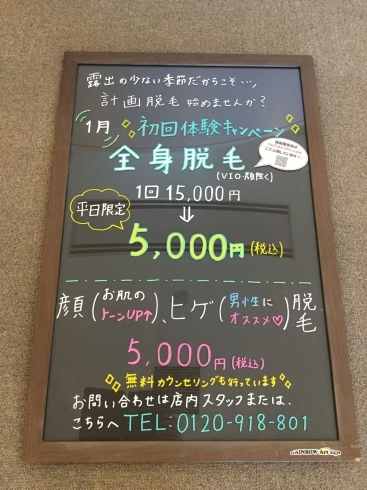 露出の少ない季節だからこそ…,
計画脱毛 始めませんか?
1月 初回体験キャンペーン
全身脱毛
(VIO・顔除く)
1回 15,000円
⇓
平日限定
5,000円(税込)
顔(お肌のトーンUP↑)、ヒゲ(男性にオススメ♡)脱毛
5,000円(税込)
無料カウンセリングも行っています
お問い合わせは店内スタッフまたは、
こちらへ TEL:0120-918-801